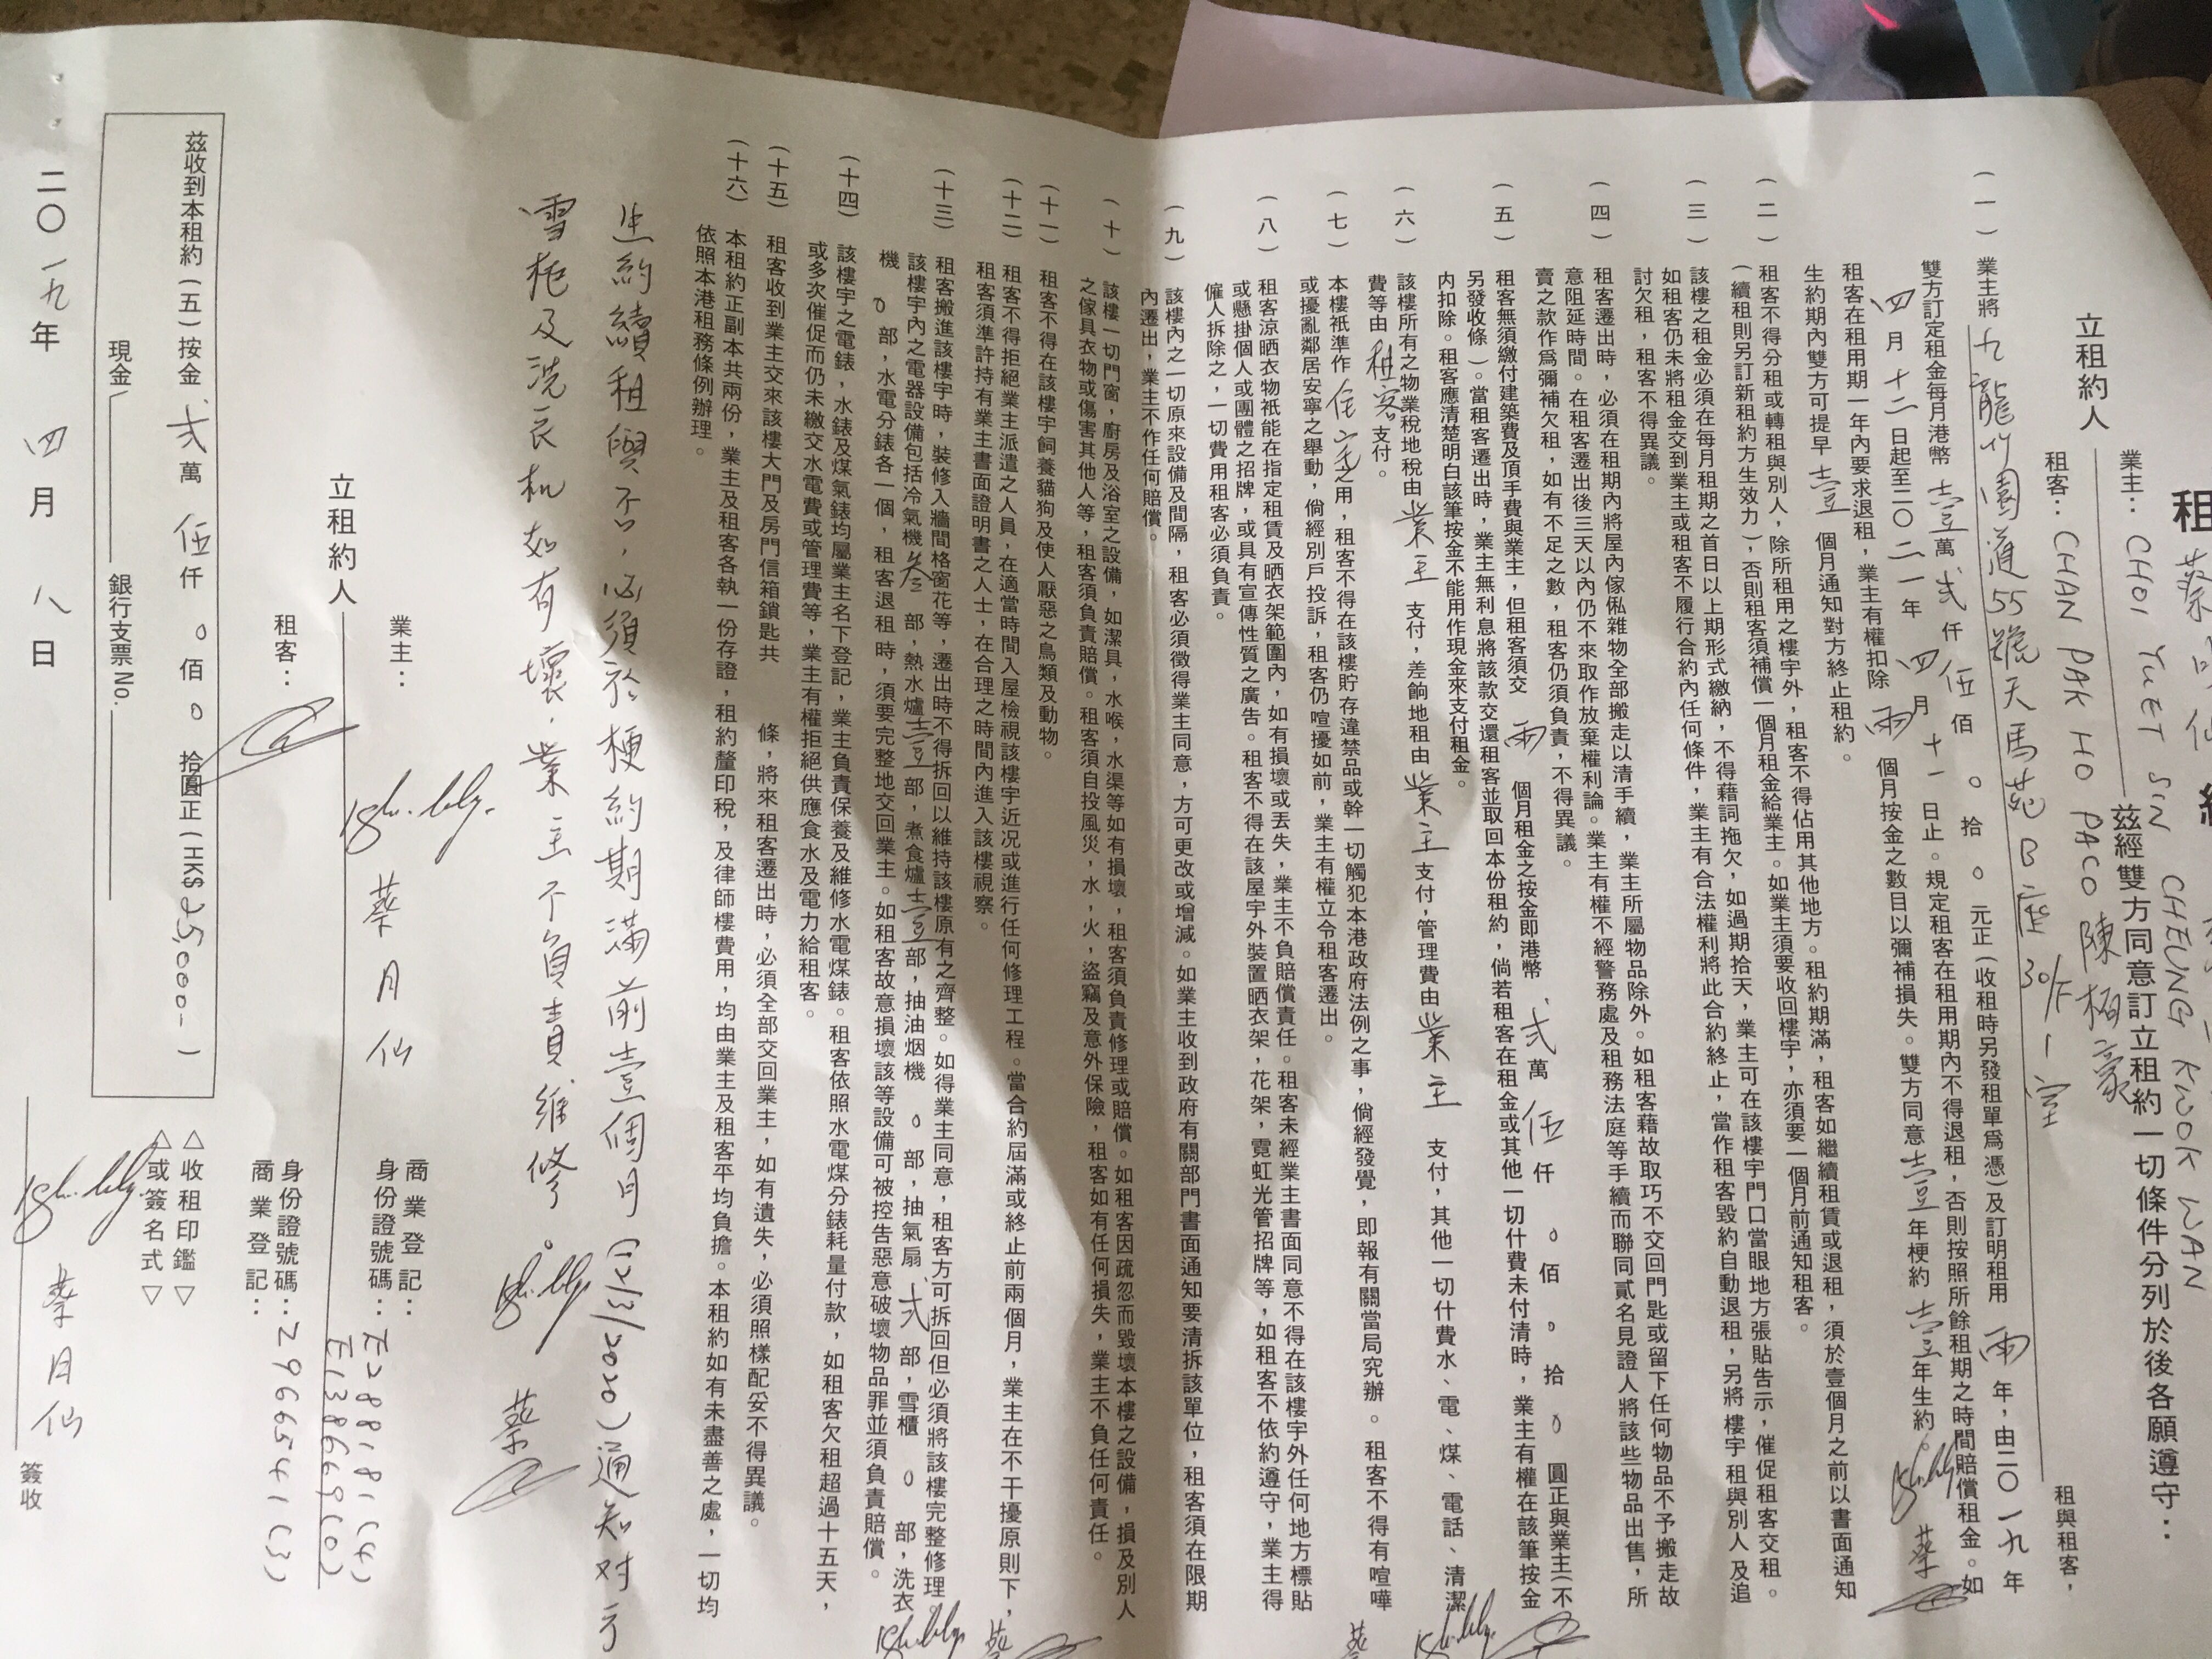 立租約人
業主：CHOI YUET SIN CHEUNG KWOK WAN
租客：CHAN PAK HO PACO 陳栢豪
茲經雙方同意訂立租約一切條件分列於後各願遵守：
（一）業主將九龍竹園道55號天馬苑B座30/F 1室 租與租客，
雙方訂定租金每月港幣壹萬弍仟伍佰0拾0元正（收租時另發租單爲憑）及訂明租用兩年，由二〇一九年
四月十二日起至二〇二一年四月十一日止。規定租客在租用期內不得退租，否則按照所餘租期之時間賠償租金。如
租客在租用期一年內要求退租，業主有權扣除兩個月按金之數目以彌補損失。雙方同意壹年梗約壹年生約。
生約期內雙方可提早壹個月通知對方終止租約。
（二）租客不得分租或轉租與別人，除所租用之樓宇外，租客不得佔用其他地方。租約期滿，租客如繼續租賃或退租，須於壹個月之前以書面通知
（續租則另訂新租約方生效力），否則租客須補償一個月租金給業主。如業主須要收回樓宇，亦須要一個月前通知租客。
（三）該樓之租金必須在每月租期之首日以上期形式繳納，不得藉詞拖欠，如過期拾天，業主可在該樓宇門口當眼地方張貼告示，催促租客交租。
如租客仍未將租金交到業主或租客不履行合約內任何條件，業主有合法權利將此合約終止，當作租客毀約自動退租，另將樓宇租與別人及追
討欠租，租客不得異議。
（四）租客遷出時，必須在租期內將屋內傢俬雜物全部搬走以清手續，業主所屬物品除外。如租客藉故取巧不交回門匙或留下任何物品不予搬走故
意阻延時間。在租客遷出後三天以內仍不來取作放棄權利論。業主有權不經警務處及租務法庭等手續而聯同貳名見證人將該些物品出售，所
賣之款作爲彌補欠租，如有不足之數，租客仍須負責，不得異議。
（五）租客無須繳付建築費及頂手費與業主，但租客須交兩個月租金之按金即港幣弍萬伍仟0佰0拾0圓正與業主（不
另發收條）。當租客遷出時，業主無利息將該款交還租客並取回本份租約，倘若租客在租金或其他一切什費未付清時，業主有權在該筆按金
內扣除。租客應清楚明白該筆按金不能用作現金來支付租金。
（六）該樓所有之物業稅地稅由業主支付，差餉地租由業主支付，管理費由業主支付，其他一切什費水、電、煤、電話、清潔
費等由租客支付。
（七）本樓衹準作住宅之用，租客不得在該樓貯存違禁品或幹一切觸犯本港政府法例之事，倘經發覺，即報有關當局究辦。租客不得有喧嘩
或擾亂鄰居安寧之舉動，倘經別戶投訴，租客仍喧擾如前，業主有權立令租客遷出。
（八）租客涼晒衣物衹能在指定租賃及晒衣架範圍內，如有損壞或丟失，業主不負賠償責任。租客未經業主書面同意不得在該樓宇外任何地方標貼
或懸掛個人或團體之招牌，或具有宣傳性質之廣告。租客不得在該屋宇外裝置晒衣架，花架，霓虹光管招牌等，如租客不依約遵守，業主得
僱人拆除之，一切費用租客必須負責。
（九）該樓內之一切原來設備及間隔，租客必須徵得業主同意，方可更改或增減。如業主收到政府有關部門書面通知要清拆該單位，租客須在限期
內遷出，業主不作任何賠償。
（十）該樓一切門窗，廚房及浴室之設備，如潔具，水喉，水渠等如有損壞，租客須負責修理或賠償。如租客因疏忽而毀壞本樓之設備，損及別人
之傢具衣物或傷害其他人等，租客須負責賠償。租客須自投風災，水，火，盜竊及意外保險，租客如有任何損失，業主不負任何責任。
（十一）租客不得在該樓宇飼養貓狗及使人厭惡之鳥類及動物。
（十二）租客不得拒絕業主派遣之人員，在適當時間入屋檢視該樓宇近況或進行任何修理工程。當合約屆滿或終止前兩個月，業主在不干擾原則下，
租客須準許持有業主書面證明書之人士，在合理之時間內進入該樓視察。
（十三）租客搬進該樓宇時，裝修入牆間格窗花等，遷出時不得拆回以維持該樓原有之齊整。如得業主同意，租客方可拆回但必須將該樓完整修理。
該樓宇內之電器設備包括冷氣機叁部，熱水爐壹部，煮食爐壹部，抽油烟機0部，抽氣扇弍部，雪櫃0部，洗衣
機0部，水電分錶各一個，租客退租時，須要完整地交回業主。如租客故意損壞該等設備可被控告惡意破壞物品罪並須負責賠償。
（十四）該樓宇之電錶，水錶及煤氣錶均屬業主名下登記，業主負責保養及維修水電煤錶。租客依照水電煤分錶耗量付款，如租客欠租超過十五天，
或多次催促而仍未繳交水電費或管理費等，業主有權拒絕供應食水及電力給租客。
（十五）租客收到業主交來該樓大門及房門信箱鎖匙共 條，將來租客遷出時，必須全部交回業主，如有遺失，必須照樣配妥不得異議。
（十六）本租約正副本共兩份，業主及租客各執一份存證，租約釐印稅，及律師樓費用，均由業主及租客平均負擔。本租約如有未盡善之處，一切均
依照本港租務條例辦理。
生約續租與否，必須於梗約期滿前壹個月（12/3/2020）通知对方
雪柜及洗衣机如有壞，業主不負責維修。
蔡
立租約人
業主：蔡月仙
租客：
商業登記：
身份證號碼：E288181(4)
E138669(0)
身份證號碼：Z966541(3)
商業登記：
茲收到本租約（五）按金弍萬伍仟0佰0拾圓正（HK$25,000-）
現金 銀行支票 No.
△收租印鑑▽
△或簽名式▽
二〇一九年四月八日
蔡月仙 簽收